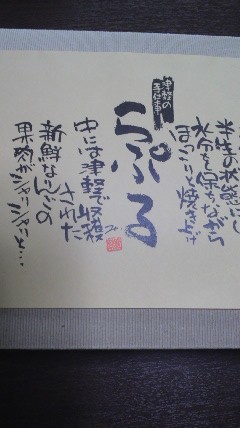 半生の状態にし
水分を保ちながら
ほっこりと焼き上げ
津軽の
手仕事
らぷる
中には津軽で収穫
された
新鮮なりんごの
果肉がシャリシャリと…